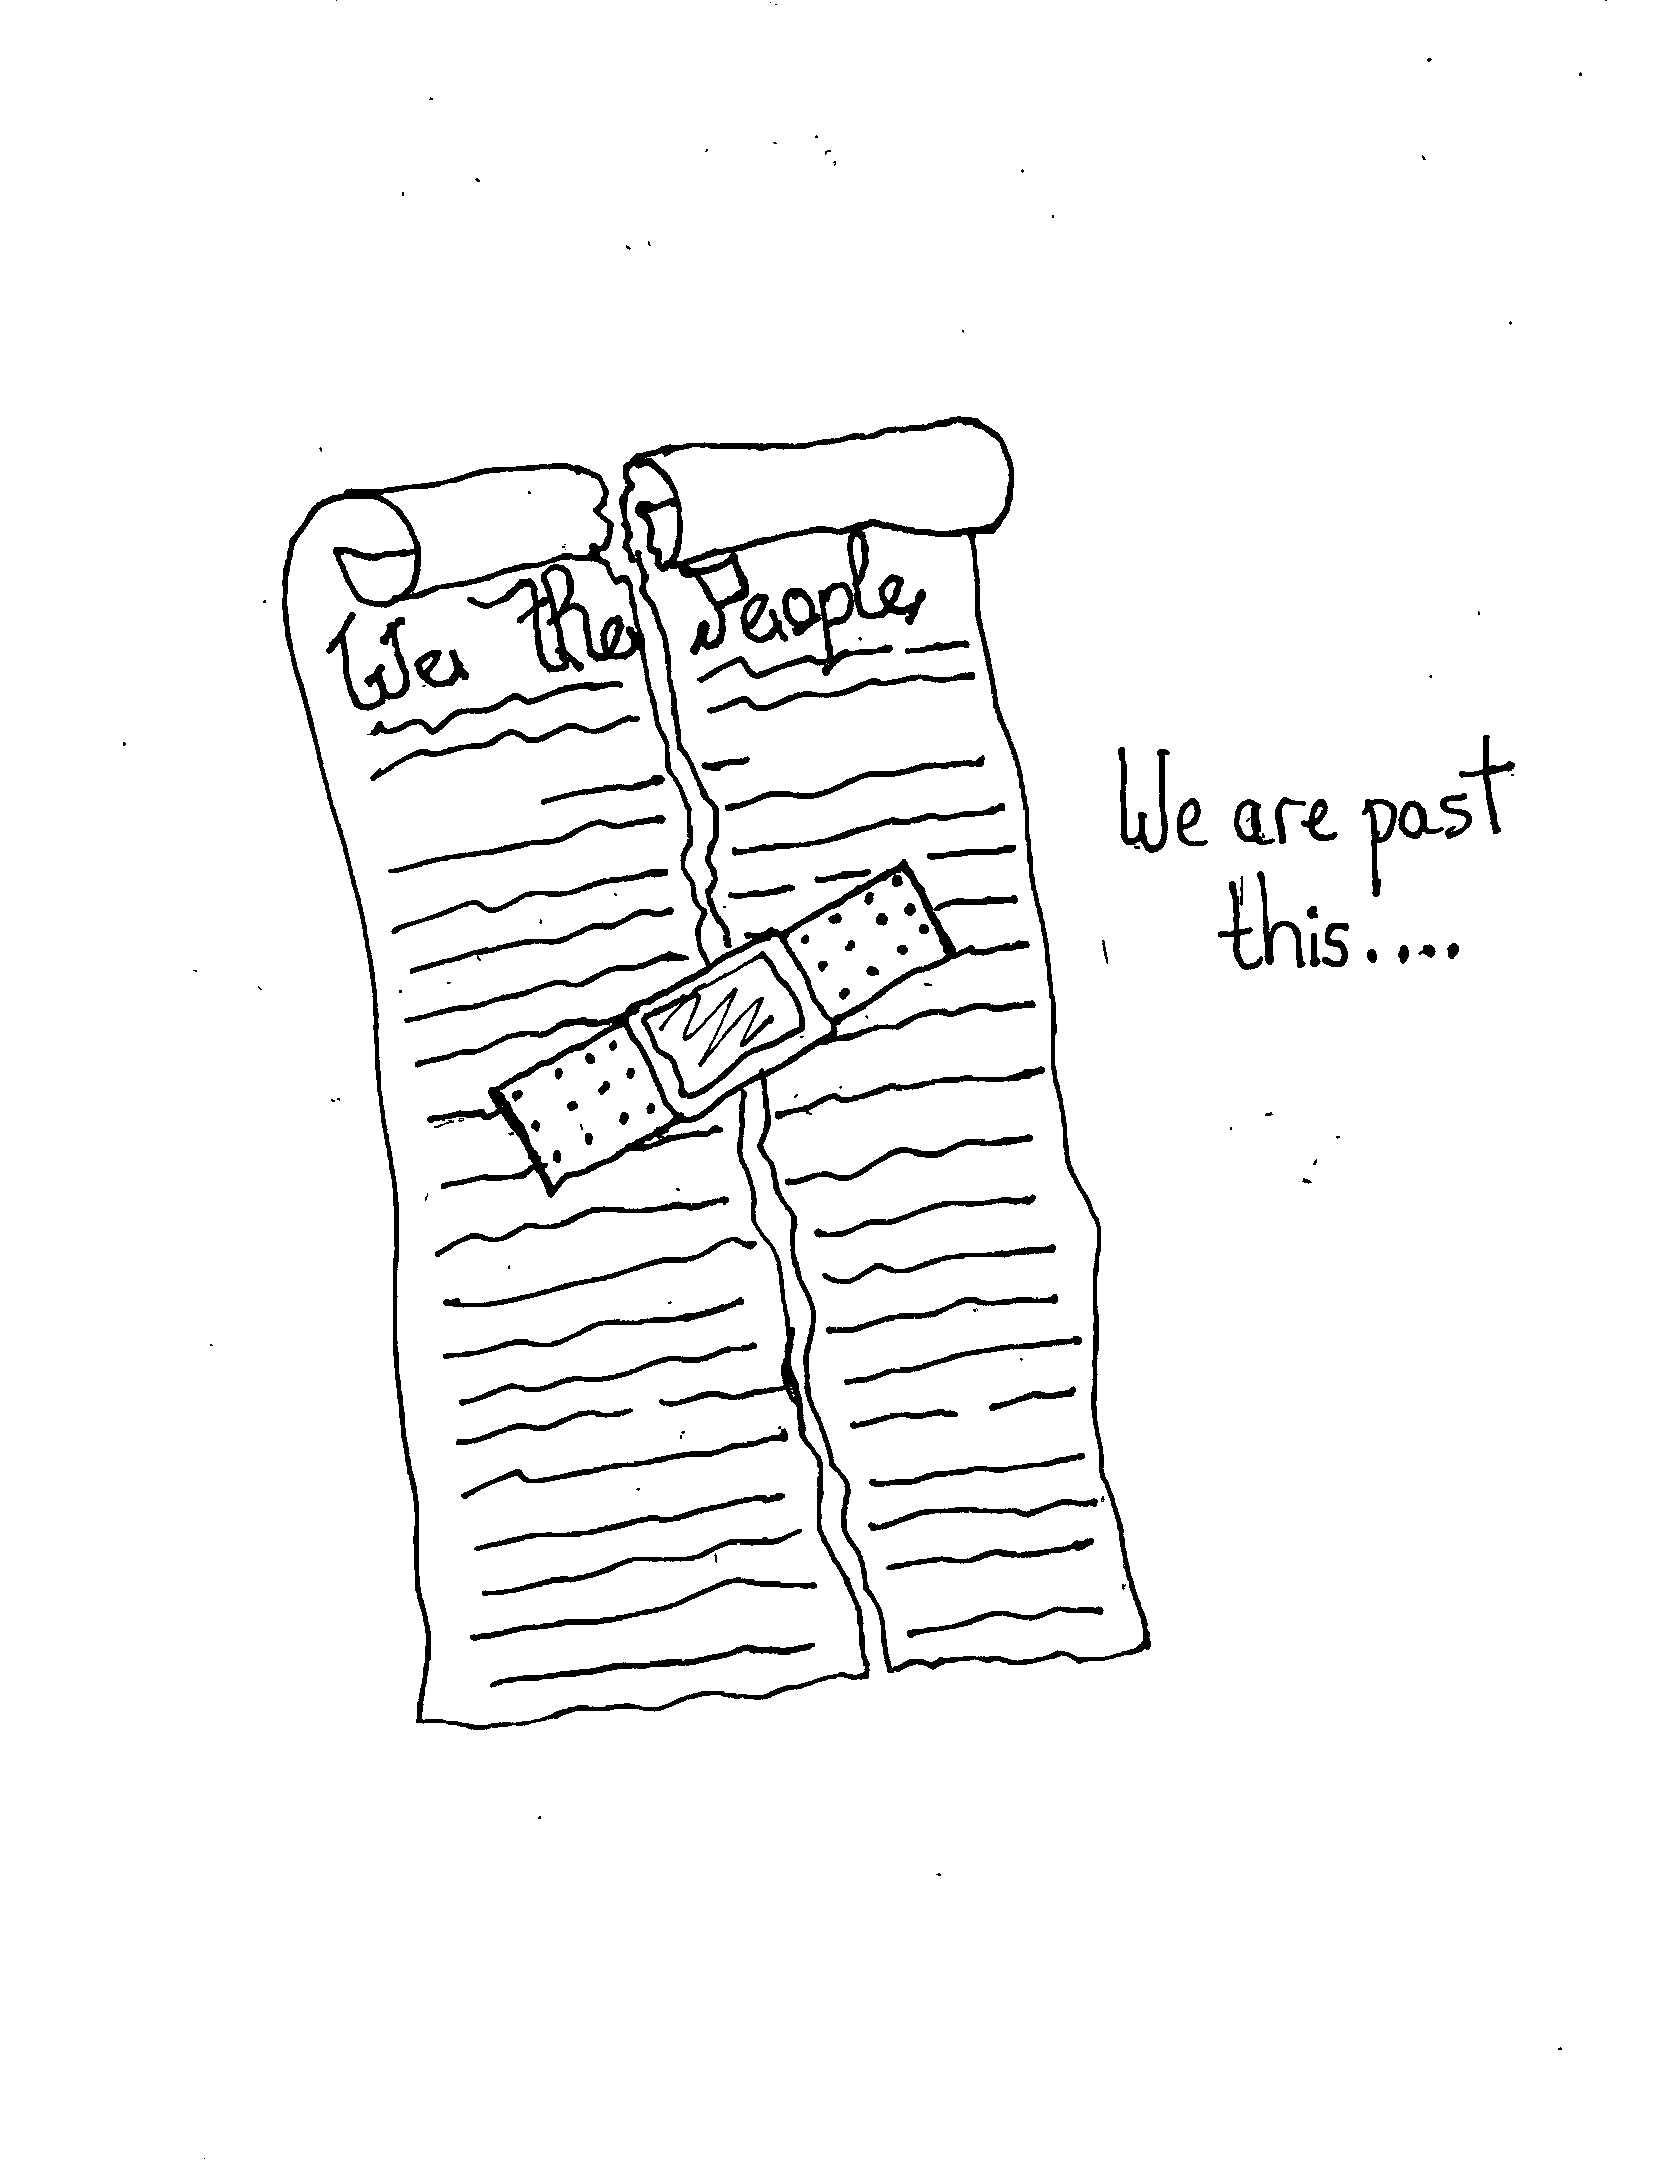 We the People,
We are past
this....